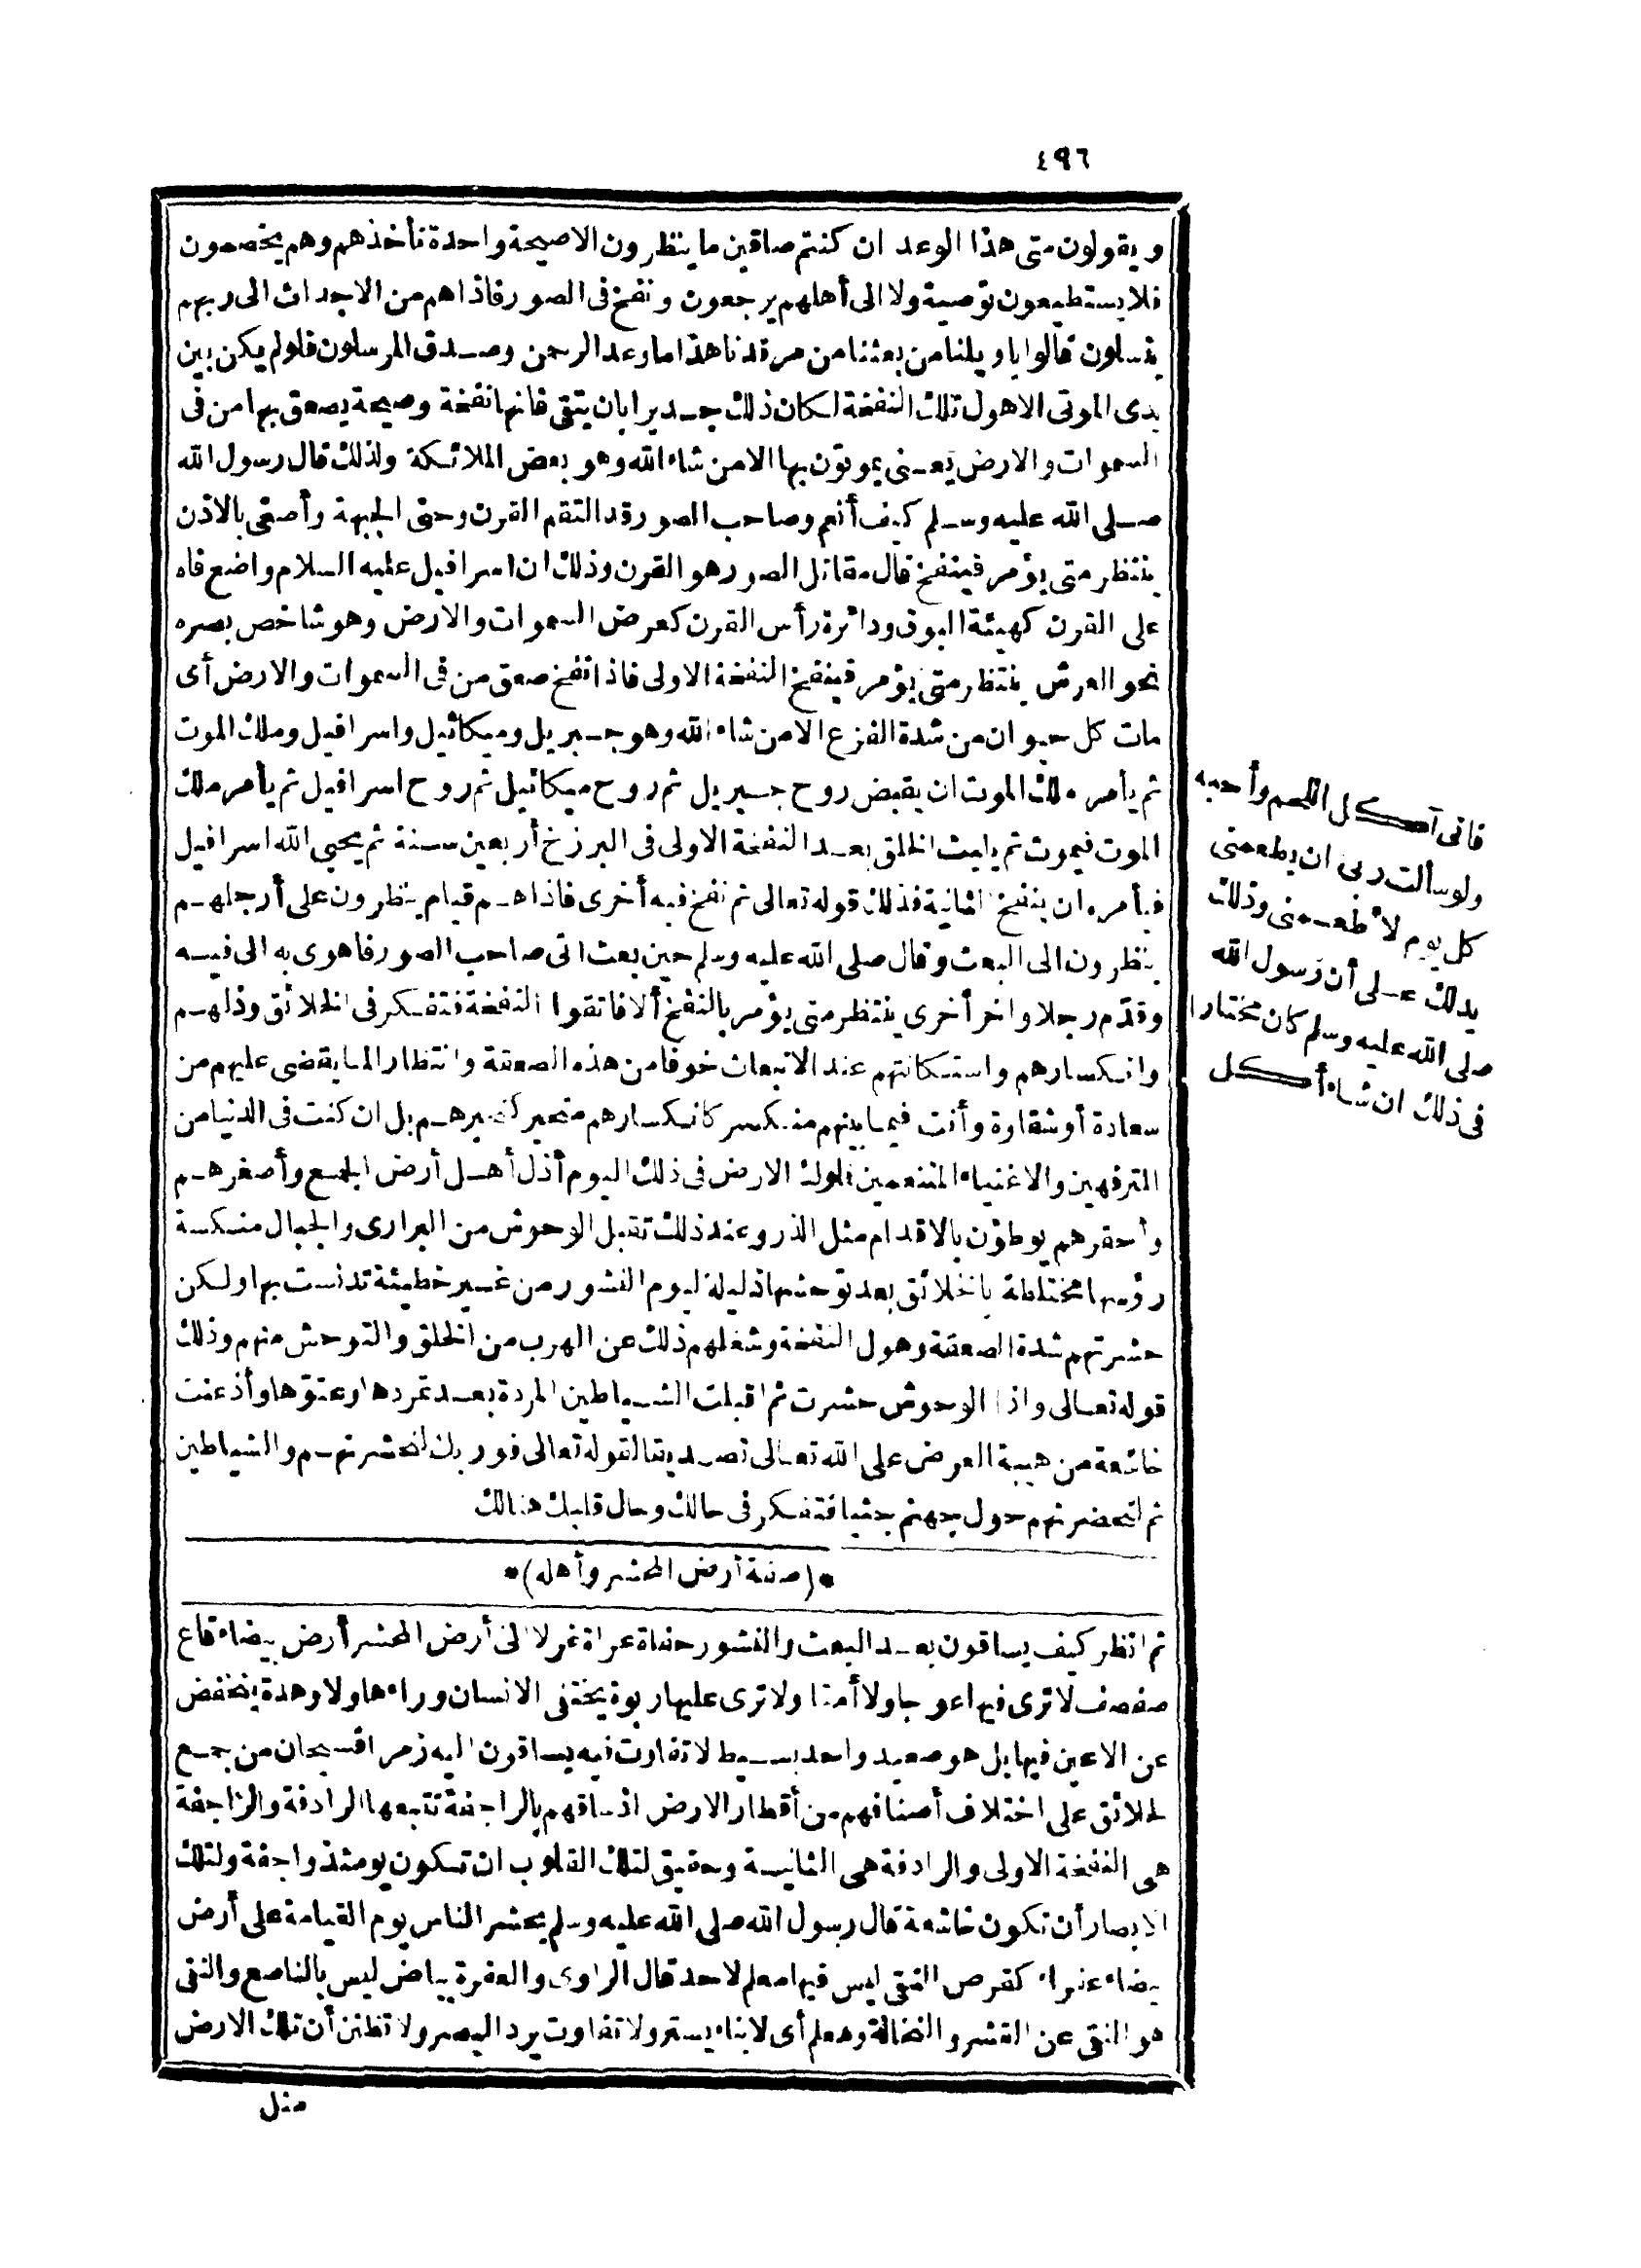 ٤٩٦
ويقولون متى هذا الوعد ان كنتم صاقين ما ينظرون الا صيحة واحدة تأخذهم وهم يخصمون
فلا يستطيعون توصية ولا الى أهلهم يرجعون ونفخ فى الصور فاذا هم من الاجداث الى ربهم
ينسلون قالوا يا ويلنا من بعثنا من مرقدنا هذا ما وعد الرحمن وصدق المرسلون فلو لم يكن بين
يدى الموتى الا هول تلك النفخة لكان ذلك جديرا بان يتقى فانها نفخة وصيحة يصعق بها من فى
السموات والارض يعنى يموتون بها الا من شاء الله وهو بعض الملائكة ولذلك قال رسول الله
صلى الله عليه وسلم كيف أنعم وصاحب الصور قد التقم القرن وحنى الجبهة وأصغى بالاذن
ينتظر متى يؤمر فينفخ قال مقاتل الصور هو القرن وذلك ان اسرافيل عليه السلام واضع فاه
على القرن كهيئة البوق ودائرة رأس القرن كعرض السموات والارض وهو شاخص بصره
نحو العرش ينتظر متى يؤمر فينفخ النفخة الاولى فاذا نفخ صعق من فى السموات والارض أى
مات كل حيوان من شدة الفزع الا من شاء الله وهو جبريل وميكائيل واسرافيل وملك الموت
ثم يأمر ملك الموت ان يقبض روح جبريل ثم روح ميكائيل ثم روح اسرافيل ثم يأمر ملك
الموت فيموت ثم يلبث الخلق بعد النفخة الاولى فى البرزخ أربعين سنة ثم يحيى الله اسرافيل
فيأمره ان ينفخ الثانية فذلك قوله تعالى ثم نفخ فيه أخرى فاذا هم قيام ينظرون على أرجلهم
ينظرون الى البعث وقال صلى الله عليه وسلم حين بعث الى صاحب الصور فاهوى به الى فيه
وقدّم رجلا واخر أخرى ينتظر متى يؤمر بالنفخ ألا فاتقوا النفخة فتفكر فى الخلائق وذلهم
وانكسارهم واستكانتهم عند الانبعاث خوفا من هذه الصعقة وانتظارا لما يقضى عليهم من
سعادة أو شقاوة وأنت فيما بينهم منكسر كانكسارهم متحير كتحيرهم بل ان كنت فى الدنيا من
المترفهين والاغنياء المتنعمين فلوك الارض فى ذلك اليوم أذل أهل أرض الجمع وأصغرهم
وأحقرهم يوطؤن بالاقدام مثل الذر وعند ذلك تقبل الوحوش من البرارى والجبال منكسة
رؤسها مختلطة بالخلائق بعد توحشها ذليلة ليوم النشور من غير خطيئة تدنست بها ولكن
حشرتهم شدة الصعقة وهول النفخة وشغلهم ذلك عن الهرب من الخلق والتوحش منهم وذلك
قوله تعالى واذا الوحوش حشرت ثم اقبلت الشياطين المردة بعد تمردها وعتوّها وأذعنت
خاشعة من هيبة العرض على الله تعالى تصديقا لقوله تعالى فوربك لنحشرنهم والشياطين
ثم لنحضرنهم حول جهنم جثيا فتفكر فى حالك وحال قلبك هنالك
*(صفة أرض المحشر وأهله)*
ثم انظر كيف يساقون بعد البعث والنشور حفاة عراة غرلا الى أرض المحشر أرض بيضاء قاع
صفصف لا ترى فيها عوجا ولا أمتا ولا ترى عليها ربوة يختفى الانسان وراءها ولا وهدة ينخفض
عن الاعين فيها بل هو صعيد واحد بسيط لا تفاوت فيه يساقون اليه زمرا فسبحان من جمع
لخلائق على اختلاف أصنافهم من أقطار الارض اذ ساقهم بالراجفة تتبعها الرادفة والراجفة
هى النفخة الاولى والرادفة هى الثانية وحقيق لتلك القلوب ان تكون يومئذ واجفة ولتلك
الابصار أن تكون خاشعة قال رسول الله صلى الله عليه وسلم يحشر الناس يوم القيامة على أرض
بيضاء عفراء كقرص النقى ليس فيها معلم لاحد قال الراوى والعفرة بياض ليس بالناصع والنقى
هو النقى عن القشر والنخالة ومعلم أى لا بناء يستر ولا تفاوت يرد البصر ولا تظنن أن تلك الارض
مثل
فانى آكل اللحم وأحبه
ولو سألت ربى ان يطعمنى
كل يوم لأطعمنى وذلك
يدلك على أن رسول الله
صلى الله عليه وسلم كان مختارا
فى ذلك ان شاء أكل